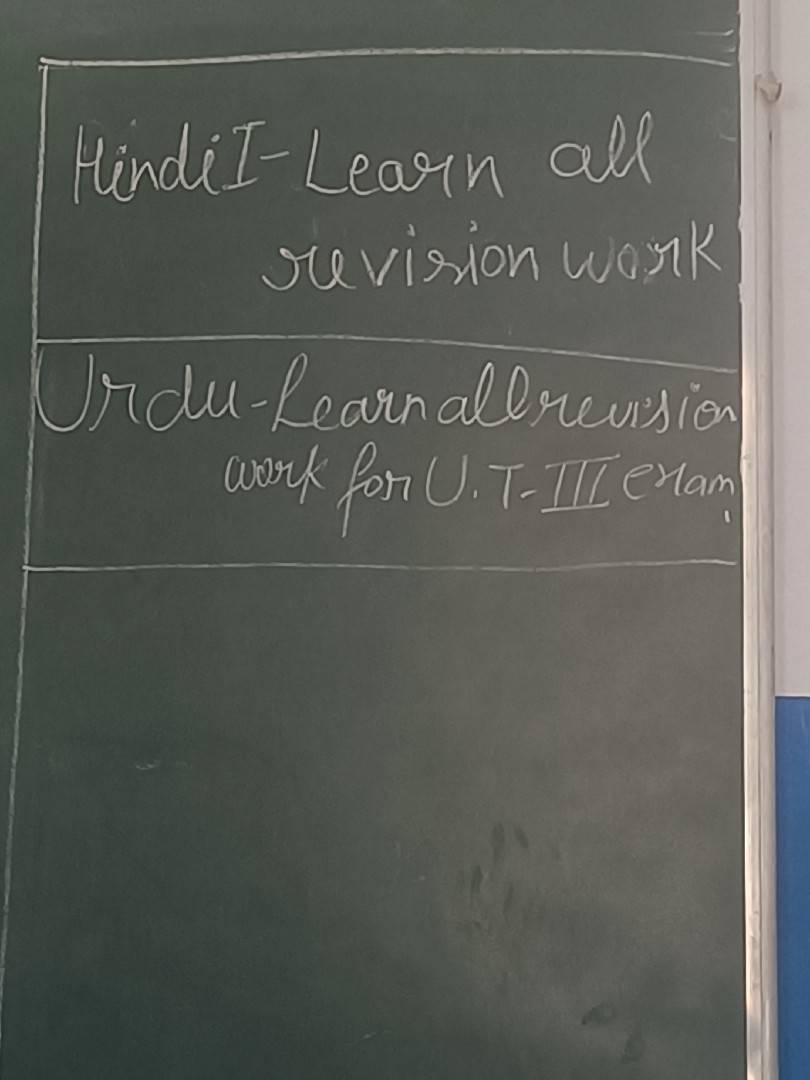 Hindi I - Learn all
revision work
Urdu - Learn all revision
work for U.T-III exam